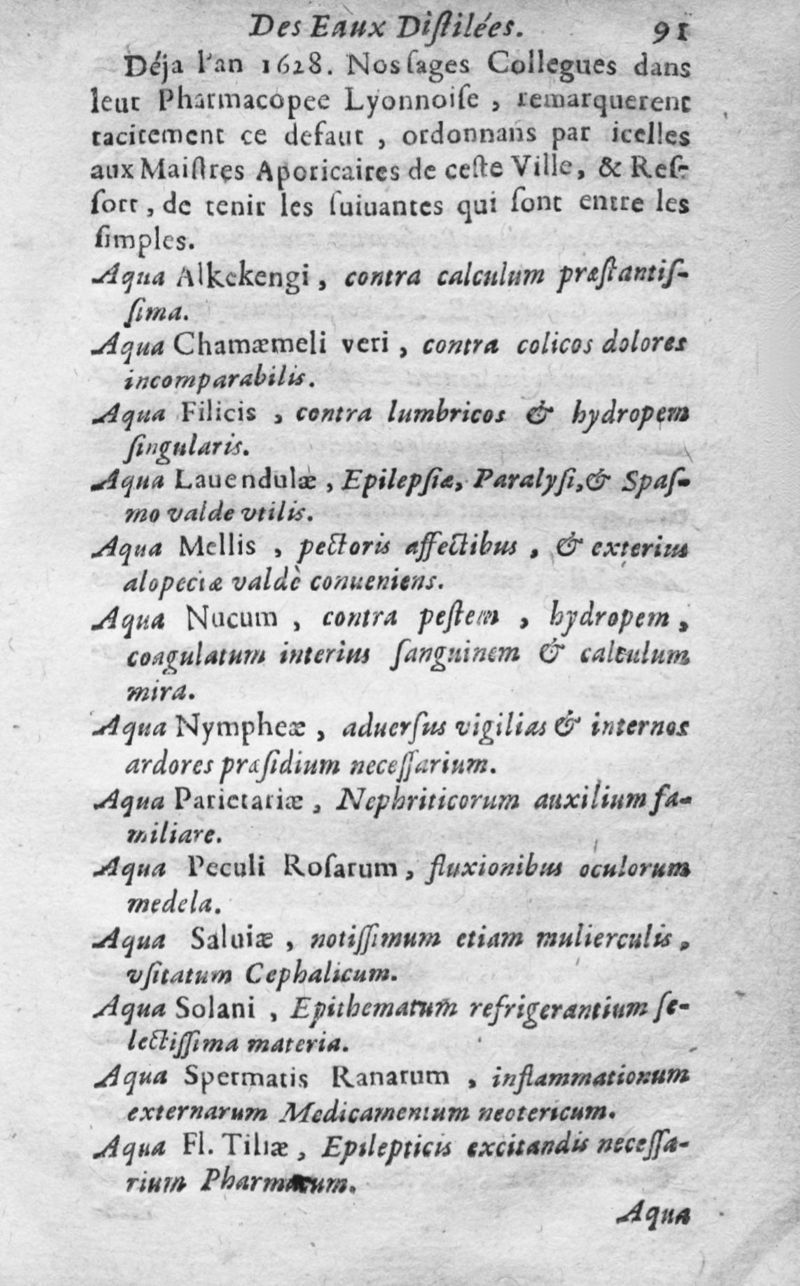 Des Eaux Distilées. 91
Déja l'an 1628. Nos sages Collegues dans
leur Pharmacopee Lyonnoiſe , remarquerent
tacitement ce defaut , ordonnans par icelles
aux Maiſtres Apoticaires de ceſte Ville, & Reſ-
ſort , de tenir les ſuiuantes qui ſont entre les
ſimples.
Aqua Alkekengi , contra calculum præſtantiſ-
ſima.
Aqua Chamæmeli veri , contra colicos dolores
incomparabilis.
Aqua Filicis , contra lumbricos & hydropem
ſingularis.
Aqua Lauendulæ , Epilepſiæ, Paralyſi, & Spaſ-
mo valde vtilis.
Aqua Mellis , pectoris affectibus , & exterius
alopeciæ valdè conueniens.
Aqua Nucum , contra peſtem , hydropem ,
coagulatum interius ſanguinem & calculum
mira.
Aqua Nympheæ , aduerſus vigilias & internos
ardores præſidium neceſſarium.
Aqua Parietariæ , Nephriticorum auxilium fa-
miliare.
Aqua Peculi Roſarum , fluxionibus oculorum
medela.
Aqua Saluiæ , notiſſimum etiam mulierculis ,
vſitatum Cephalicum.
Aqua Solani , Epithematum refrigerantium ſe-
lectiſſima materia.
Aqua Spermatis Ranarum , inflammationum
externarum Medicamentum neotericum.
Aqua Fl. Tiliæ , Epilepticis excitandis neceſſa-
rium Pharmacum.
Aqua